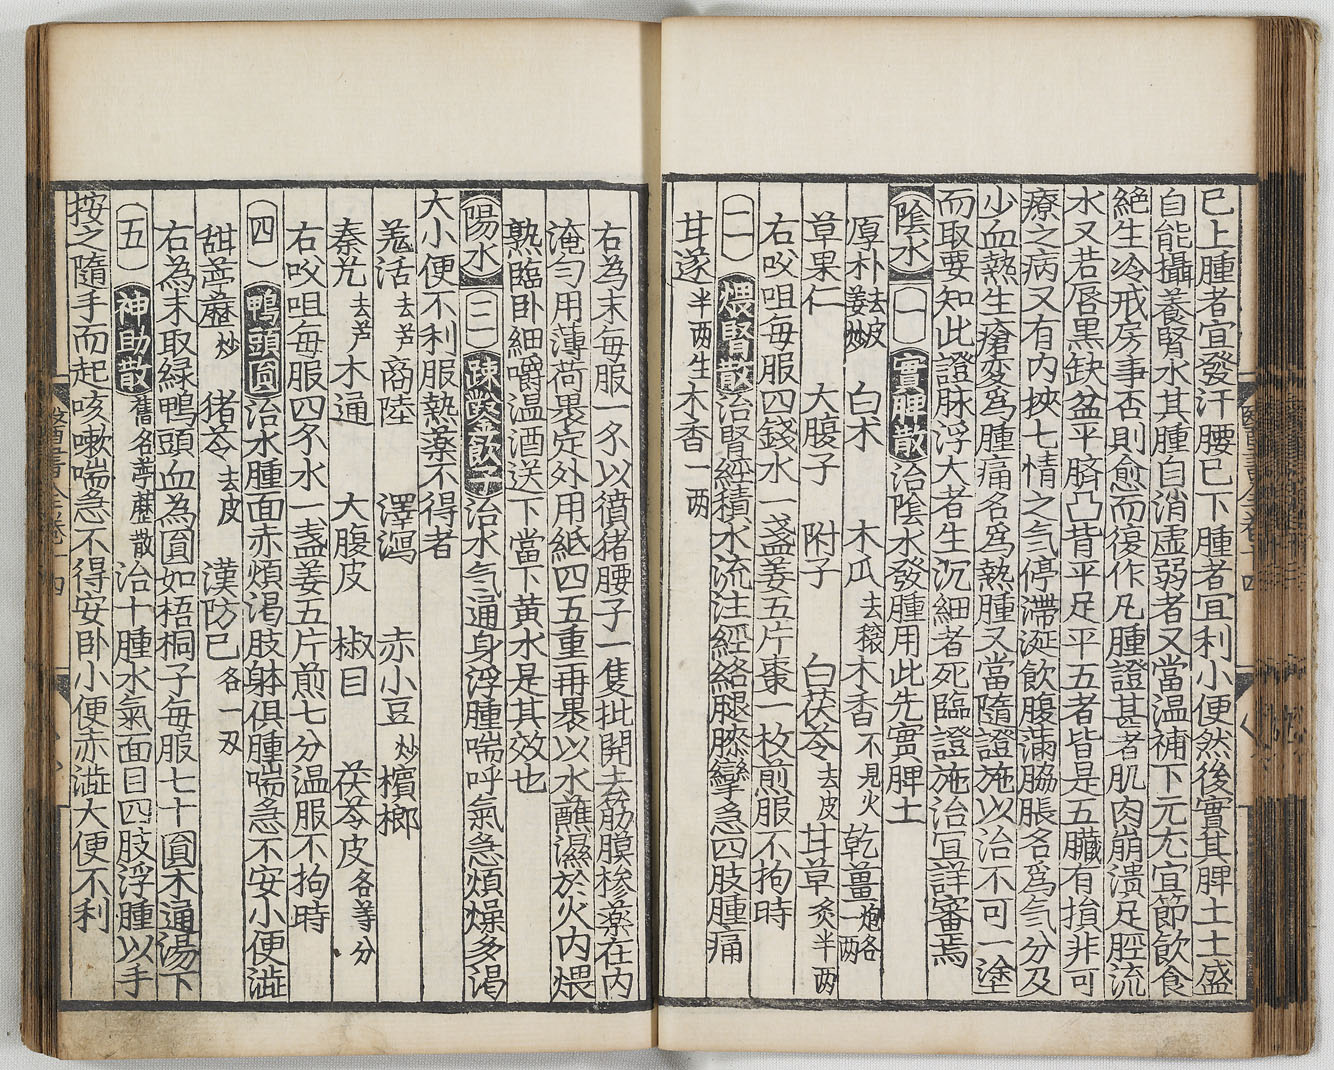 巳上腫者宜發汗腰巳下腫者宜利小便然後實其脾土土盛
自能攝養腎水其腫自消虚弱者又當温補下元尤宜節飲食
絶生冷戒房事否則愈而復作凡腫證甚者肌肉崩潰足脛流
水又若唇黒缺盆平臍凸背平足平五者皆是五臓有損非可
療之病又有内挾七情之气停滯涎飲腹滿脇脹名爲气分及
少血熱生瘡変爲腫痛名爲熱腫又當隨證施以治不可一塗
而取要知此證脉浮大者生沉細者死臨證施治宜詳審焉
陰水 一 實脾散 治陰水發腫用此先實脾土
厚朴去皮姜炒 白朮 木瓜去穰 木香不見火 乾薑炮各一两
草果仁 大腹子 附子 白茯苓去皮 甘草炙半两
右㕮咀毎服四錢水一盞姜五片棗一枚煎服不拘時
二 煨腎散 治腎經積水流注經絡腿膝攣急四肢腫痛
甘遂半两生 木香一两
右為末毎服一分以獖猪腰子一隻批開去筋膜摻薬在内
淹匀用薄荷褁定外用紙四五重再褁以水蘸濕於火内煨
熟臨卧細嚼温酒送下當下黄水是其效也
陽水 三 踈鑿飲子 治水气通身浮腫喘呼氣急煩燥多渇
大小便不利服熱薬不得者
羌活去芦 商陸 澤瀉 赤小豆炒 檳榔
秦艽去芦 木通 大腹皮 椒目 茯苓皮各等分
右㕮咀毎服四分水一盞姜五片煎七分温服不拘時
四 鴨頭圎 治水腫面赤煩渇肢躰倶腫喘急不安小便澁
甜葶藶炒 猪苓去皮 漢防巳各一两
右為末取緑鴨頭血為圎如梧桐子毎服七十圎木通湯下
五 神助散 舊名葶藶散 治十腫水氣面目四肢浮腫以手
按之隨手而起咳嗽喘急不得安卧小便赤澁大便不利